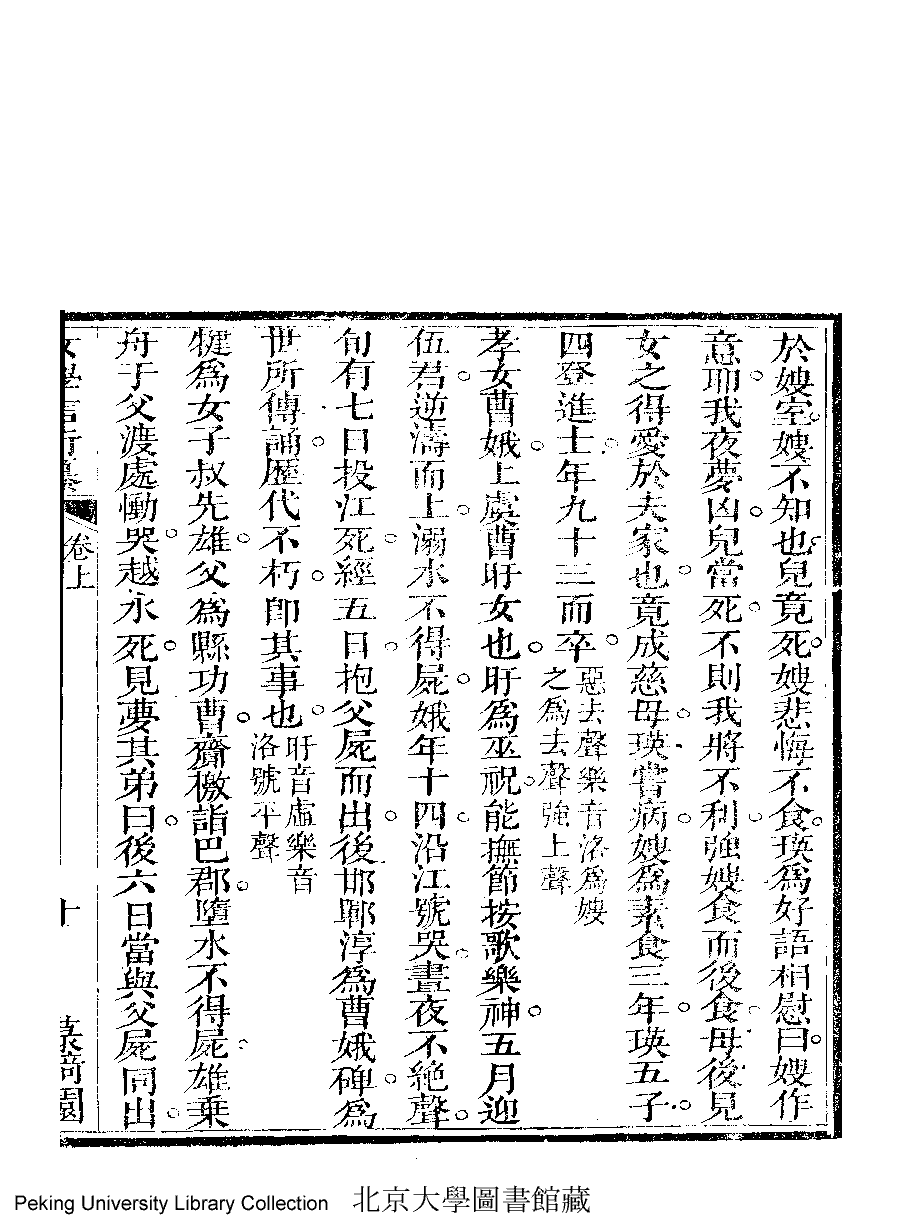 於嫂室嫂不知也兒竟死嫂悲悔不食瑛爲好語相慰曰嫂作
意耶我夜夢凶兒當死不則我將不利強嫂食而後食母後見
女之得愛於夫家也竟成慈母瑛嘗病嫂爲素食三年瑛五子
四登進士年九十三而卒惡去聲樂音洛爲嫂
之爲去聲強上聲
孝女曹娥上虞曹盱女也盱爲巫祝能撫節按歌樂神五月迎
伍君逆濤而上溺水不得屍娥年十四沿江號哭晝夜不絕聲
旬有七日投江死經五日抱父屍而出後邯鄲淳爲曹娥碑爲
世所傳誦歷代不朽卽其事也盱音虛樂音
洛號平聲
犍爲女子叔先雄父爲縣功曹齎檄詣巴郡墮水不得屍雄乘
舟于父渡處慟哭越永死見夢其弟曰後六日當與父屍同出
女學言行纂 卷上 十
Peking University Library Collection 北京大學圖書館藏